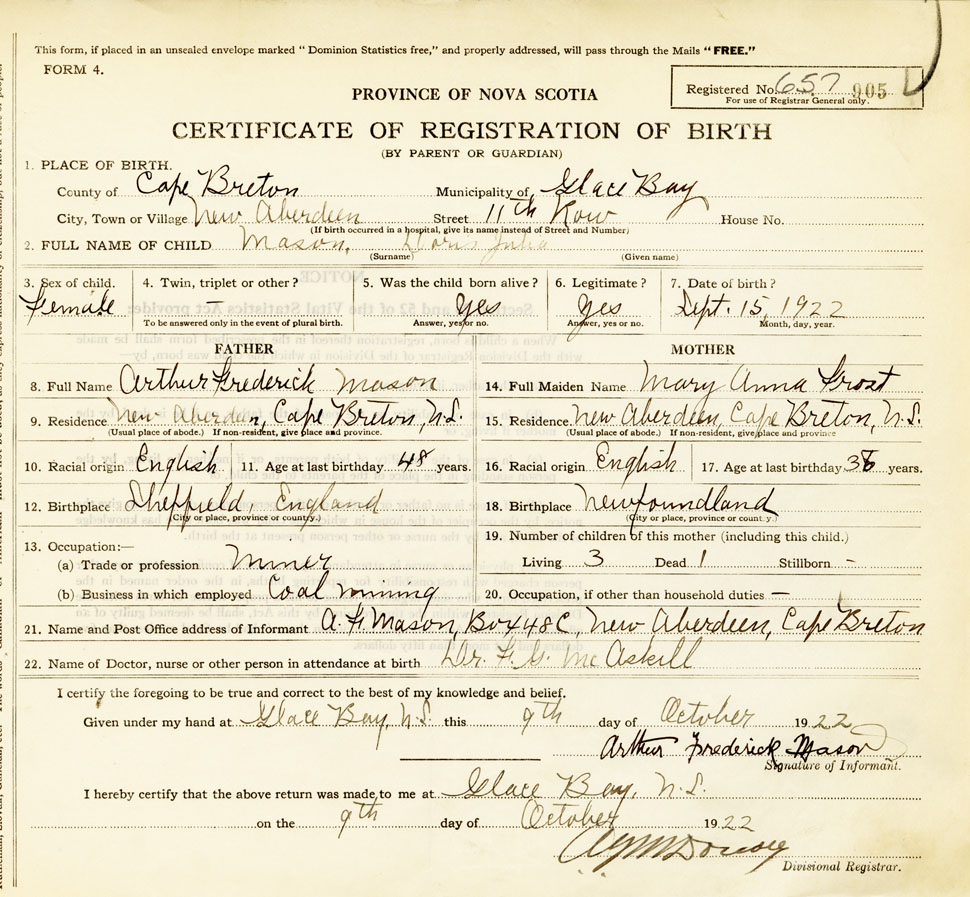 This form, if placed in an unsealed envelope marked "Dominion Statistics free," and properly addressed, will pass through the Mails "FREE."
FORM 4.
Registered No. 657 905
For use of Registrar General only.
PROVINCE OF NOVA SCOTIA
CERTIFICATE OF REGISTRATION OF BIRTH
(BY PARENT OR GUARDIAN)
1. PLACE OF BIRTH.
County of Cape Breton Municipality of Glace Bay
City, Town or Village New Aberdeen Street 11th Row House No.
(If birth occurred in a hospital, give its name instead of Street and Number)
2. FULL NAME OF CHILD Mason, Doris Julia
(Surname) (Given name)
3. Sex of child. 4. Twin, triplet or other? 5. Was the child born alive? 6. Legitimate? 7. Date of birth?
Female — Yes Yes Sept. 15, 1922
To be answered only in the event of plural birth. Answer, yes or no. Answer, yes or no. Month, day, year.
FATHER MOTHER
8. Full Name Arthur Frederick Mason 14. Full Maiden Name Mary Anna Frost
9. Residence New Aberdeen, Cape Breton, N.S. 15. Residence New Aberdeen, Cape Breton, N.S.
(Usual place of abode.) If non-resident, give place and province. (Usual place of abode.) If non-resident, give place and province
10. Racial origin English 11. Age at last birthday 48 years. 16. Racial origin English 17. Age at last birthday years.
12. Birthplace Sheffield, England 18. Birthplace Newfoundland
(City or place, province or country.) (City or place, province or country.)
19. Number of children of this mother (including this child.)
13. Occupation:—
(a) Trade or profession Miner Living 3 Dead 1 Stillborn -
(b) Business in which employed Coal mining 20. Occupation, if other than household duties —
21. Name and Post Office address of Informant A. F. Mason, Box 48C, New Aberdeen, Cape Breton
22. Name of Doctor, nurse or other person in attendance at birth Dr. McAskill
I certify the foregoing to be true and correct to the best of my knowledge and belief.
Given under my hand at Glace Bay, N.S. this 9th day of October 1922
Arthur Frederick Mason
Signature of Informant.
I hereby certify that the above return was made to me at Glace Bay, N.S.
on the 9th day of October 1922
Divisional Registrar.